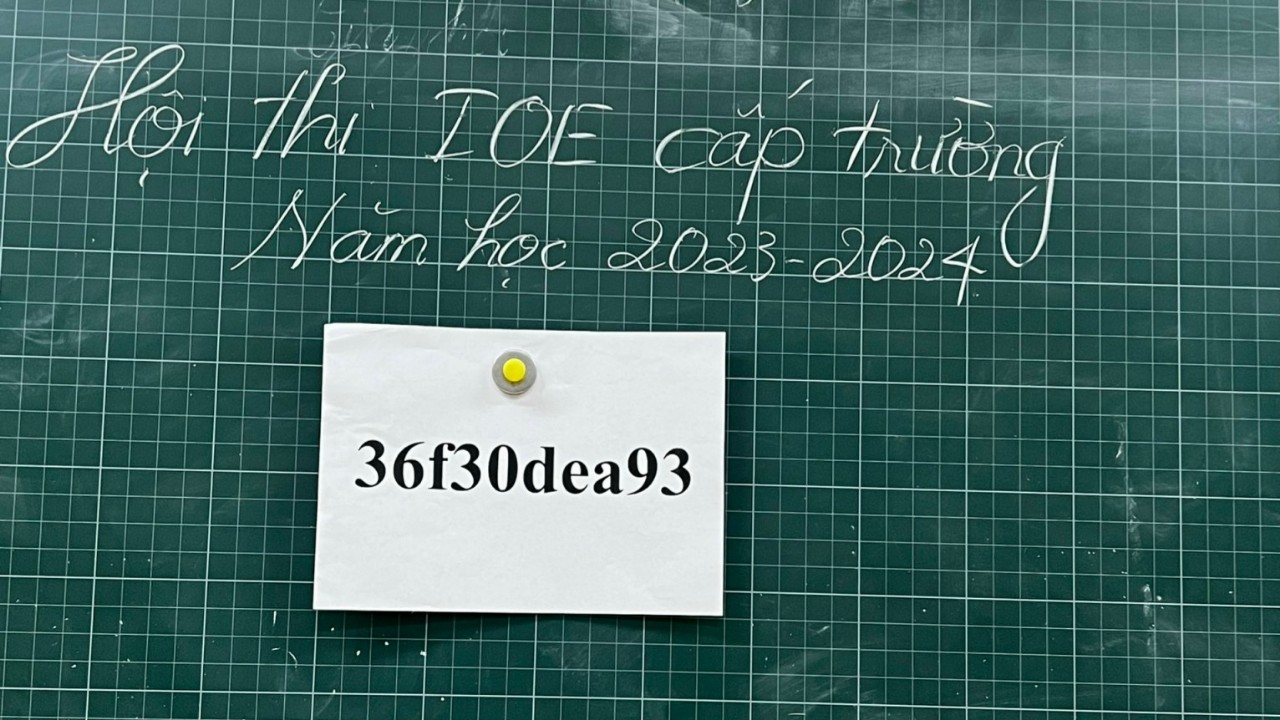 Hội thi IOE cấp trường
Năm học 2023-2024
36f30dea93